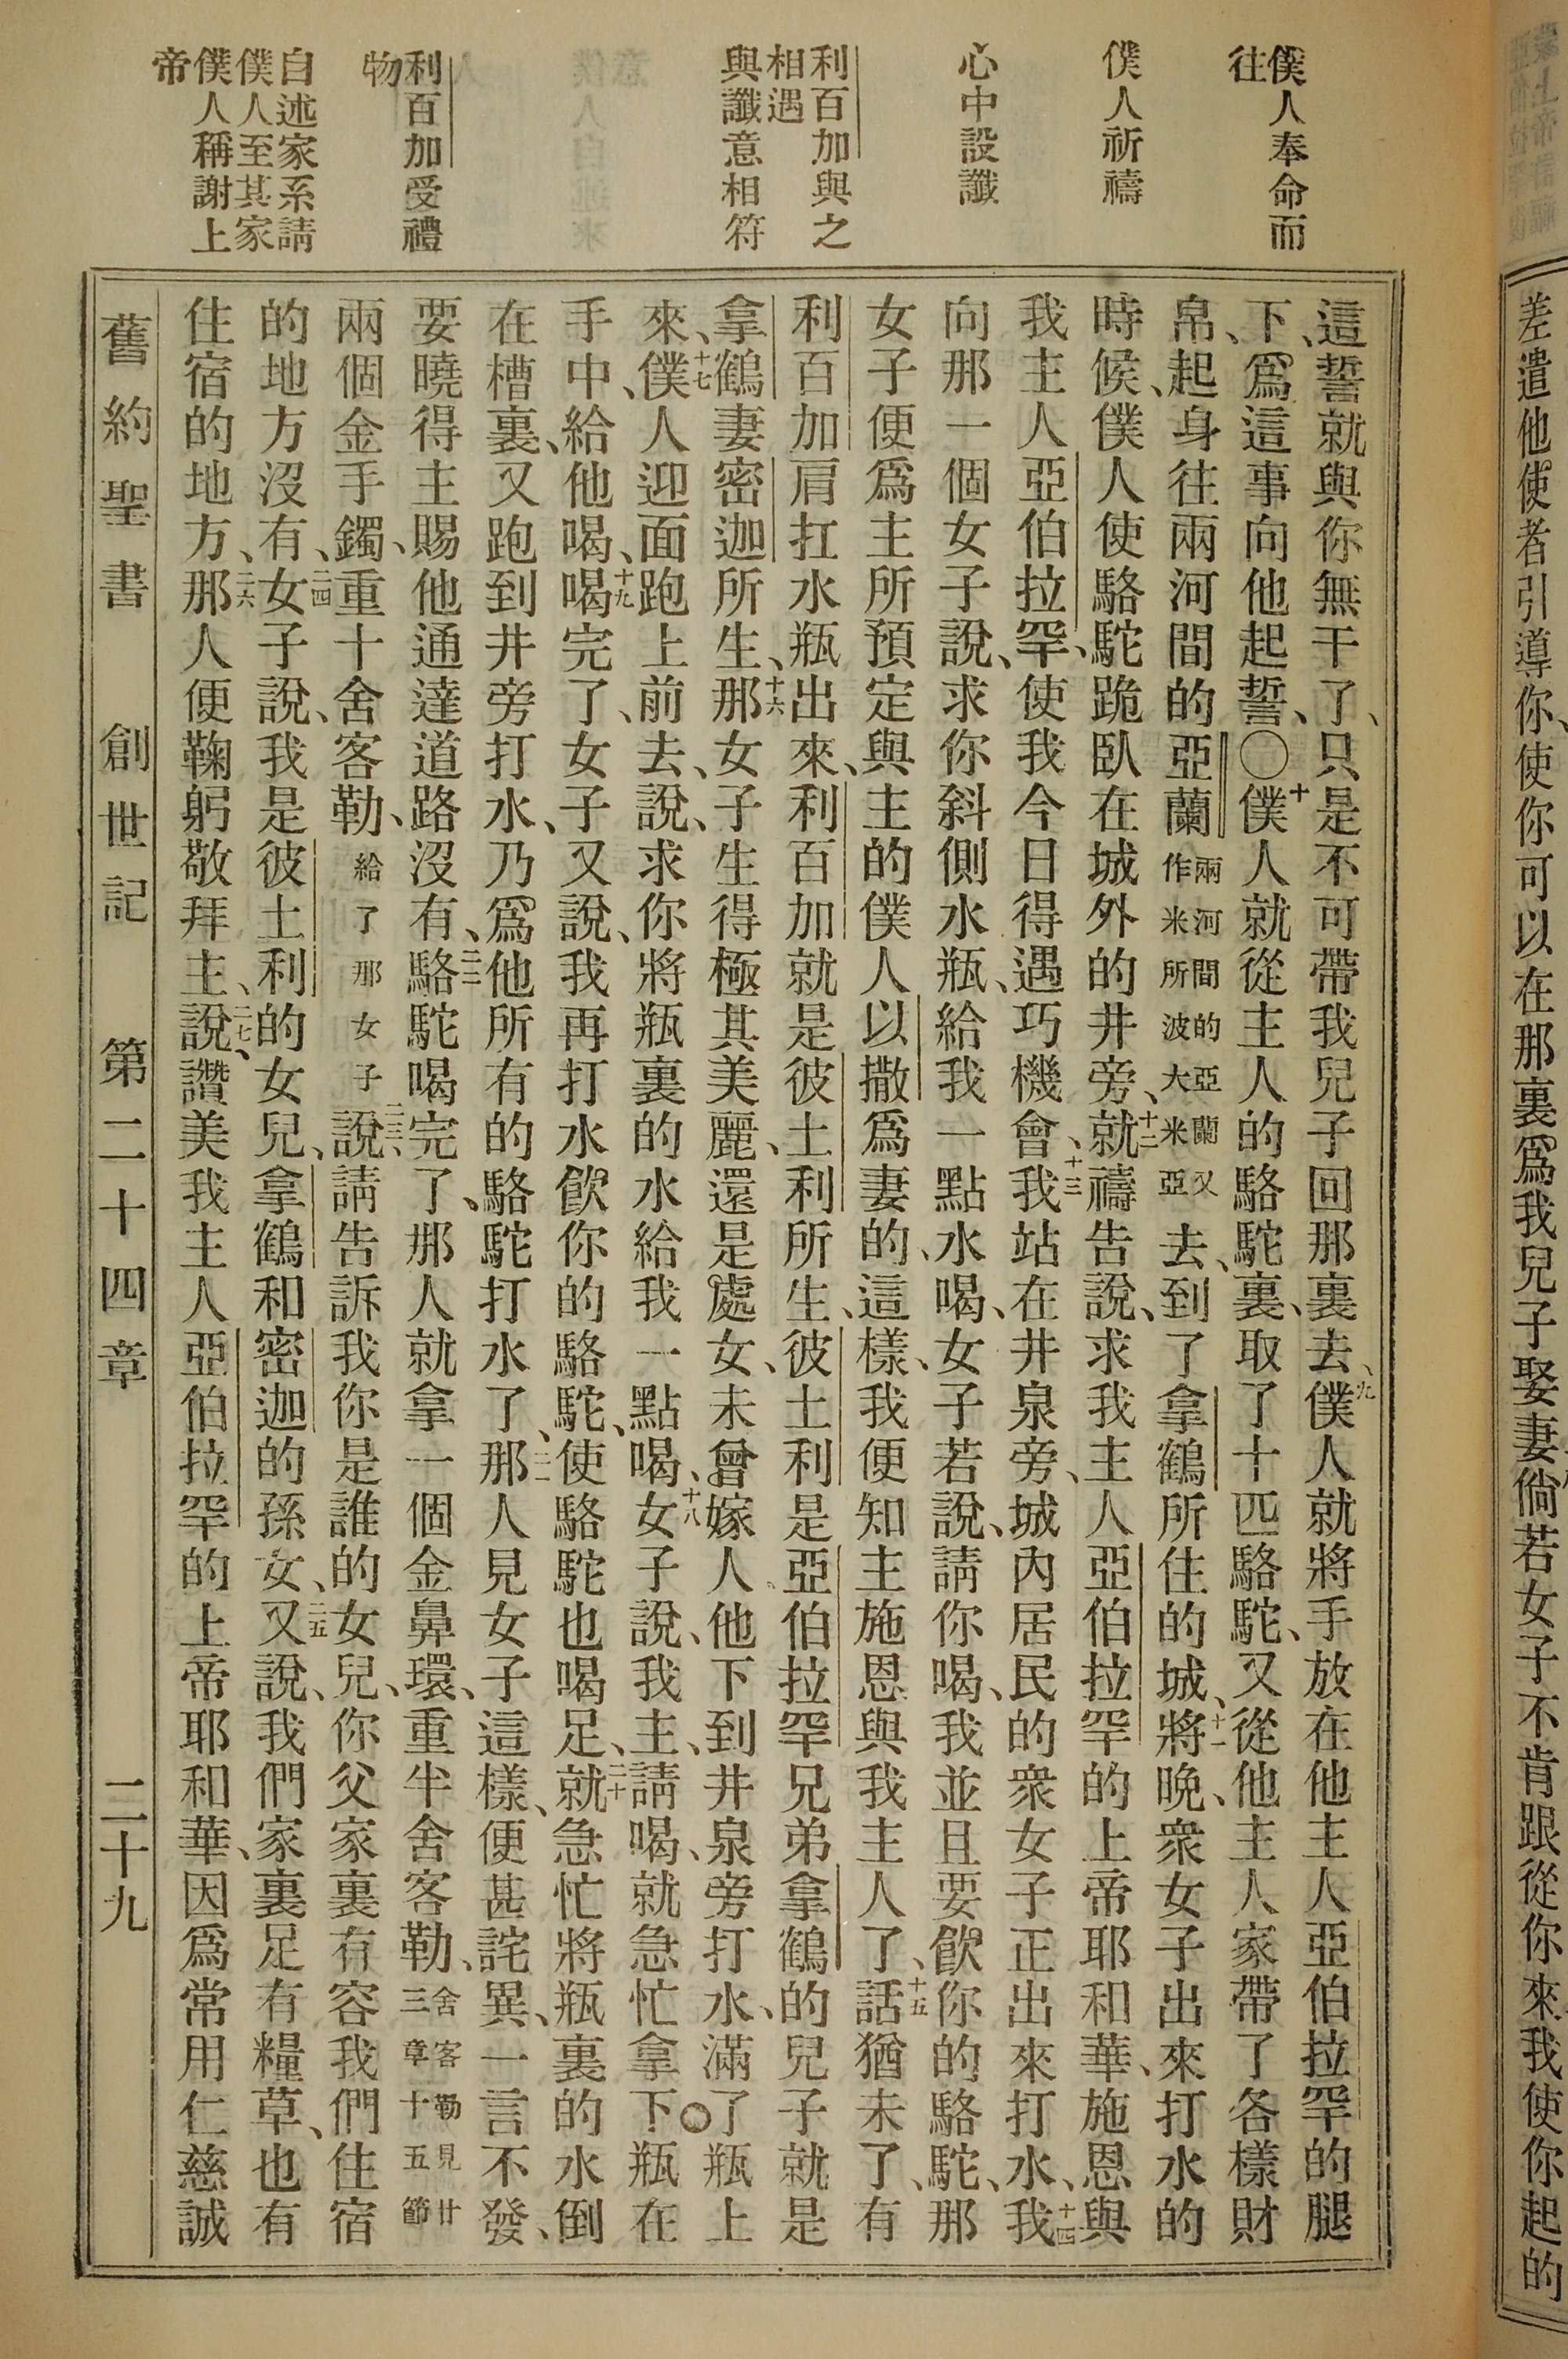 差遣他使者引導你、使你可以在那裏爲我兒子娶妻倘若女子不肯跟從你來我使你起的
僕人奉命而
往
僕人祈禱
心中設讖
利百加與之
相遇
與讖意相符
利百加受禮
物
自述家系請
僕人至其家
僕人稱謝上
帝
這誓就與你無干了、只是不可帶我兒子回那裏去、九僕人就將手放在他主人亞伯拉罕的腿
下、爲這事向他起誓、〇十僕人就從主人的駱駝裏、取了十匹駱駝、又從他主人家帶了各樣財
帛、起身往兩河間的亞蘭兩河間的亞蘭又作米所波大米亞去、到了拿鶴所住的城、十一將晚、衆女子出來打水的
時候、僕人使駱駝跪臥在城外的井旁、十二就禱告說、求我主人亞伯拉罕的上帝耶和華、施恩與
我主人亞伯拉罕、使我今日得遇巧機會、十三我站在井泉旁、城內居民的衆女子正出來打水、十四我
向那一個女子說、求你斜側水瓶、給我一點水喝、女子若說、請你喝、我並且要飮你的駱駝、那
女子便爲主所預定與主的僕人以撒爲妻的、這樣、我便知主施恩與我主人了、十五話猶未了、有
利百加肩扛水瓶出來、利百加就是彼土利所生、彼土利是亞伯拉罕兄弟拿鶴的兒子就是
拿鶴妻密迦所生、十六那女子生得極其美麗、還是處女、未曾嫁人、他下到井泉旁打水、滿了瓶上
來、十七僕人迎面跑上前去、說、求你將瓶裏的水給我一點喝、十八女子說、我主、請喝、就急忙拿下瓶在
手中、給他喝、十九喝完了、女子又說、我再打水飮你的駱駝、使駱駝也喝足、二十就急忙將瓶裏的水倒
在槽裏、又跑到井旁打水、乃爲他所有的駱駝打水了、二一那人見女子這樣、便甚詫異、一言不發、
要曉得主賜他通達道路沒有、二二駱駝喝完了、那人就拿一個金鼻環、重半舍客勒、舍客勒見廿三章十五節
兩個金手鐲、重十舍客勒、給了那女子二三說、請告訴我你是誰的女兒、你父家裏有容我們住宿
的地方沒有、二四女子說、我是彼土利的女兒、拿鶴和密迦的孫女、二五又說、我們家裏足有糧草、也有
住宿的地方、二六那人便鞠躬敬拜主、二七說、讚美我主人亞伯拉罕的上帝耶和華、因爲常用仁慈誠
舊約聖書 創世記 第二十四章 二十九